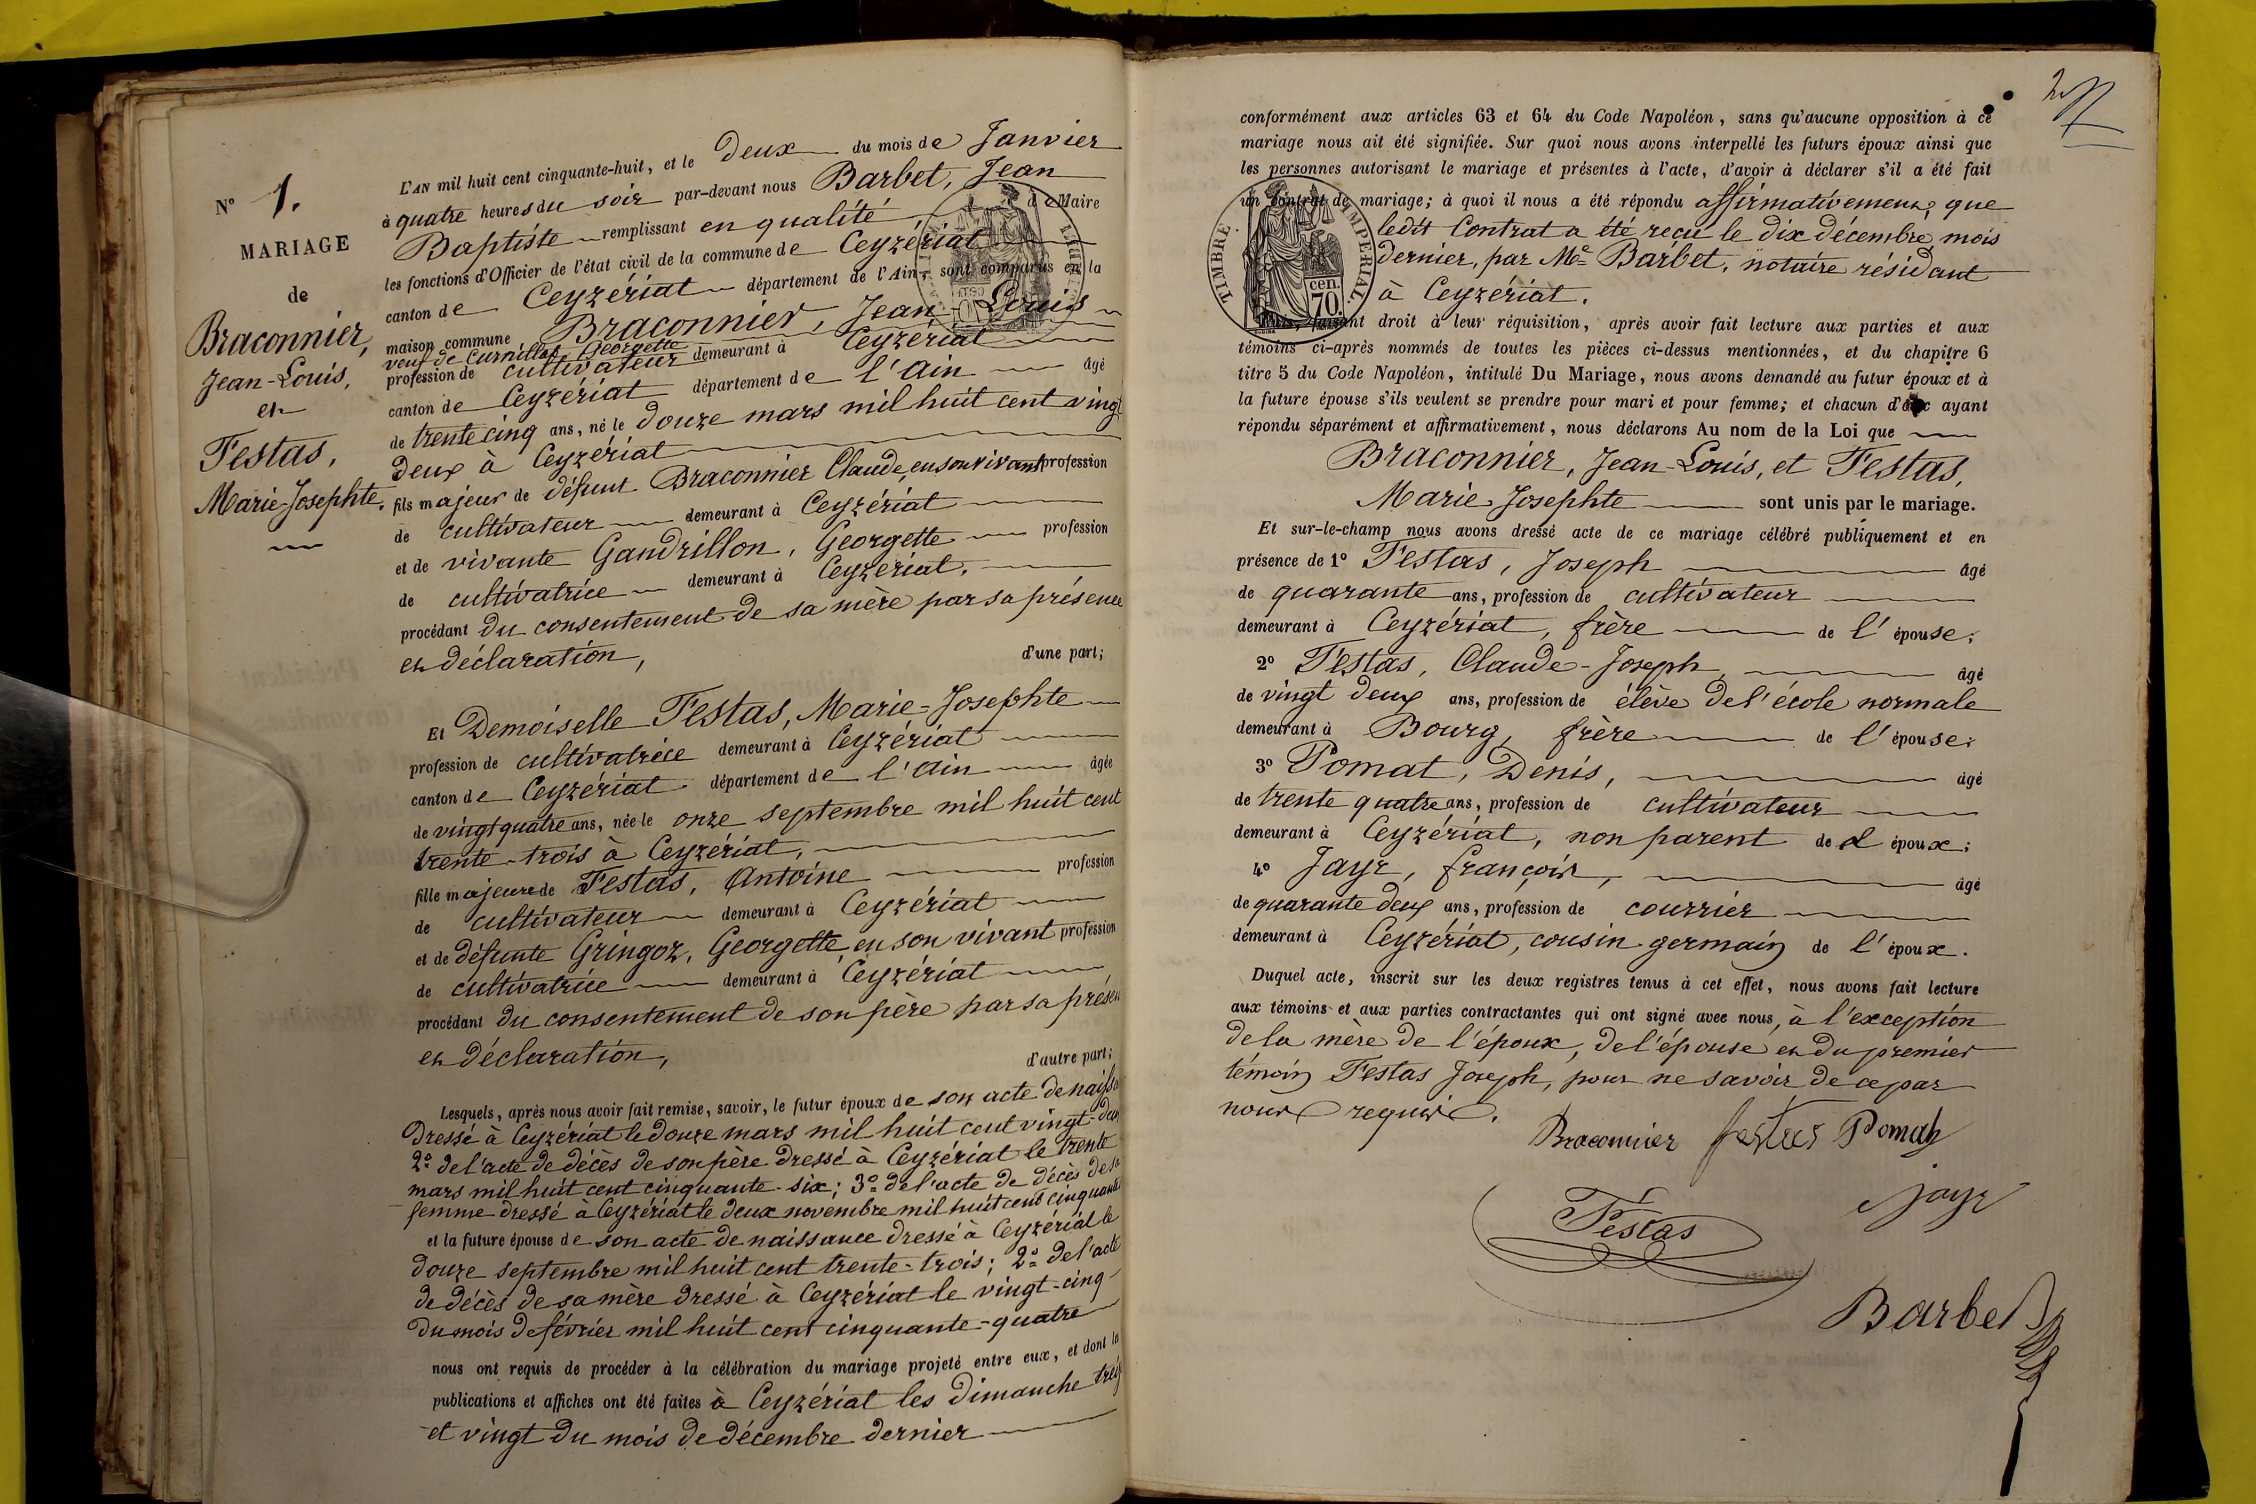 N° 1.
MARIAGE
de
Braconnier,
Jean-Louis,
et
Festas,
Marie-Josephte.
L'AN mil huit cent cinquante-huit, et le Deux du mois de Janvier
à quatre heures du soir par-devant nous Barbet, Jean
Baptiste remplissant en qualité de Maire
les fonctions d'Officier de l'état civil de la commune de Ceyzériat
canton de Ceyzériat département de l'Ain, sont comparus en la
maison commune Braconnier, Jean Louis
veuf de Georgette
profession de cultivateur demeurant à Ceyzériat
canton de Ceyzériat département de l'Ain âgé
de trente cinq ans, né le douze mars mil huit cent vingt
deux à Ceyzériat
fils majeur de défunt Braconnier Claude, en son vivant profession
de cultivateur demeurant à Ceyzériat
et de vivante Gandrillon, Georgette profession
de cultivatrice demeurant à Ceyzériat.
procédant du consentement de sa mère par sa présence
et déclaration, d'une part;
Et Demoiselle Festas, Marie-Josephte
profession de cultivatrice demeurant à Ceyzériat
canton de Ceyzériat département de l'Ain âgée
de vingt quatre ans, née le onze septembre mil huit cent
trente-trois à Ceyzériat,
fille majeure de Festas, Antoine profession
de cultivateur demeurant à Ceyzériat
et de défunte Gringoz, Georgette, en son vivant profession
de cultivatrice demeurant à Ceyzériat
procédant du consentement de son père par sa présen
et déclaration, d'autre part;
Lesquels, après nous avoir fait remise, savoir, le futur époux de son acte de naissa
Dressé à Ceyzériat le douze mars mil huit cent vingt-deux
2° de l'acte de décès de son père dressé à Ceyzériat le trente
mars mil huit cent cinquante-six; 3° de l'acte de décès de sa
femme dressé à Ceyzériat le deux novembre mil huit cent cinquante
et la future épouse de son acte de naissance dressé à Ceyzériat le
douze septembre mil huit cent trente-trois; 2° de l'acte
de décès de sa mère dressé à Ceyzériat le vingt-cinq
du mois de février mil huit cent cinquante-quatre
nous ont requis de procéder à la célébration du mariage projeté entre eux, et dont la
publications et affiches ont été faites à Ceyzériat les Dimanche trei
et vingt du mois de décembre dernier
conformément aux articles 63 et 64 du Code Napoléon, sans qu'aucune opposition à ce
mariage nous ait été signifiée. Sur quoi nous avons interpellé les futurs époux ainsi que
les personnes autorisant le mariage et présentes à l'acte, d'avoir à déclarer s'il a été fait
un contrat de mariage; à quoi il nous a été répondu affirmativement, que
ledit Contrat a été reçu le dix décembre, mois
dernier, par Me Barbet, notaire résidant
à Ceyzériat.
TIMBRE IMPERIAL.
cen. 70.
faisant droit à leur réquisition, après avoir fait lecture aux parties et aux
témoins ci-après nommés de toutes les pièces ci-dessus mentionnées, et du chapitre 6
titre 5 du Code Napoléon, intitulé Du Mariage, nous avons demandé au futur époux et à
la future épouse s'ils veulent se prendre pour mari et pour femme; et chacun d'eux ayant
répondu séparément et affirmativement, nous déclarons Au nom de la Loi que
Braconnier, Jean-Louis, et Festas,
Marie-Josephte sont unis par le mariage.
Et sur-le-champ nous avons dressé acte de ce mariage célébré publiquement et en
présence de 1° Festas, Joseph âgé
de quarante ans, profession de cultivateur
demeurant à Ceyzériat, frère de l'épouse;
2° Festas, Claude-Joseph, âgé
de vingt deux ans, profession de élève de l'école normale
demeurant à Bourg, frère de l'épouse;
3° Pomat, Denis, âgé
de trente quatre ans, profession de cultivateur
demeurant à Ceyzériat, non parent de l'époux;
4° Jayr, françois, âgé
de quarante deux ans, profession de courrier
demeurant à Ceyzériat, cousin germain de l'époux.
Duquel acte, inscrit sur les deux registres tenus à cet effet, nous avons fait lecture
aux témoins et aux parties contractantes qui ont signé avec nous, à l'exception
de la mère de l'époux, de l'épouse et du premier
témoin Festas Joseph, pour ne savoir de ce par
nous requis.
Braconnier festas Pomat
Festas Jayr
Barbet